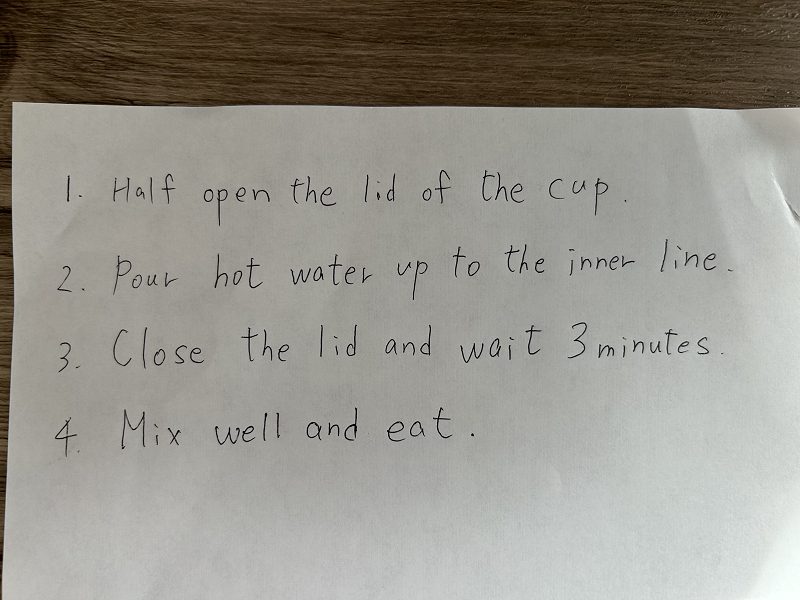 1. Half open the lid of the cup.
2. Pour hot water up to the inner line.
3. Close the lid and wait 3 minutes.
4. Mix well and eat.